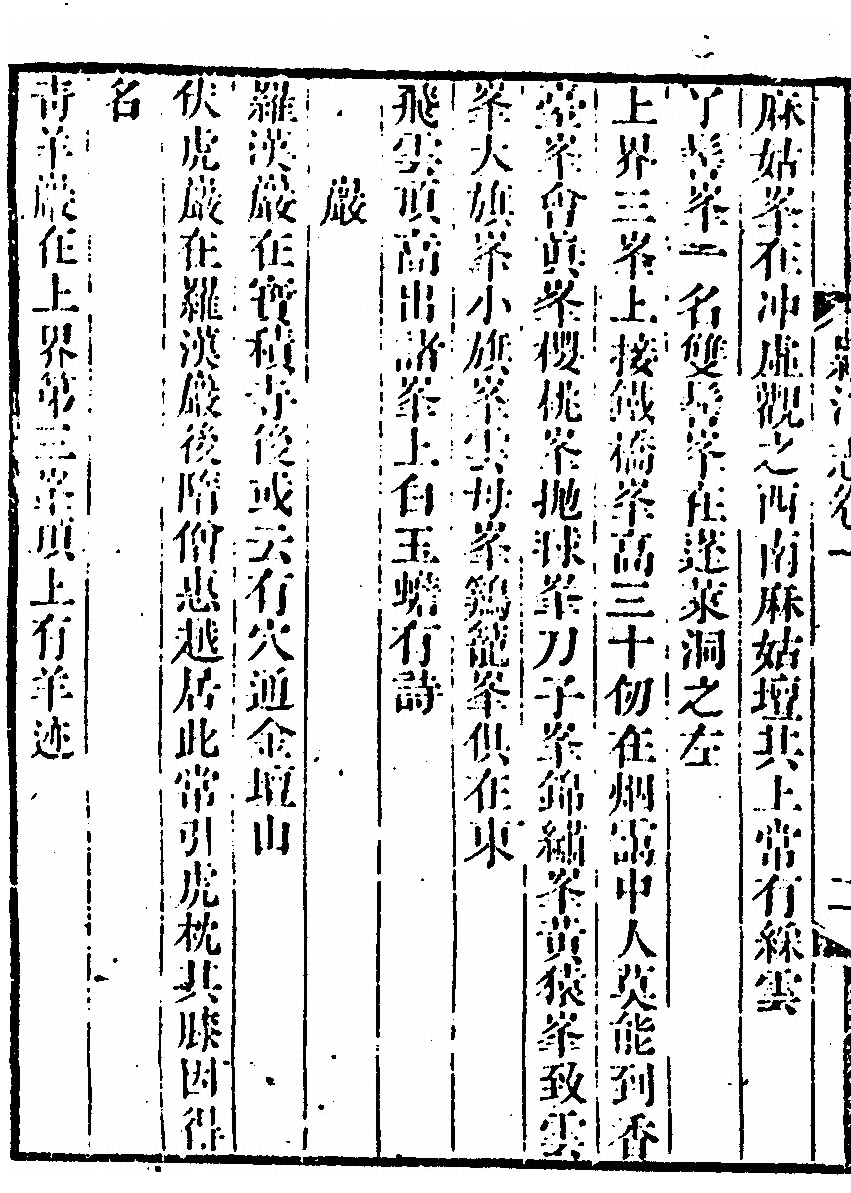 麻姑峯在冲虛觀之西南麻姑壇其上常有綵雲
丫髻峯一名雙髻峯在蓬萊洞之左
上界三峯上接鐵橋峯高三十仞在烟霄中人莫能到香
臺峯會眞峯㹨㹨峯抛毬峯刀子峯錦繡峯黃猿峯致雲
峯大旗峯小旗峯雲母峯鷄籠峯俱在東
飛雲頂高出諸峯上白玉蟾有詩
巖
羅漢巖在寶積寺後或云有穴通金壇山
伏虎巖在羅漢巖後隋僧惠越居此常引虎枕其膝因得
名
靑羊巖在上界第三峯頂上有羊迹
羅浮志卷一
二